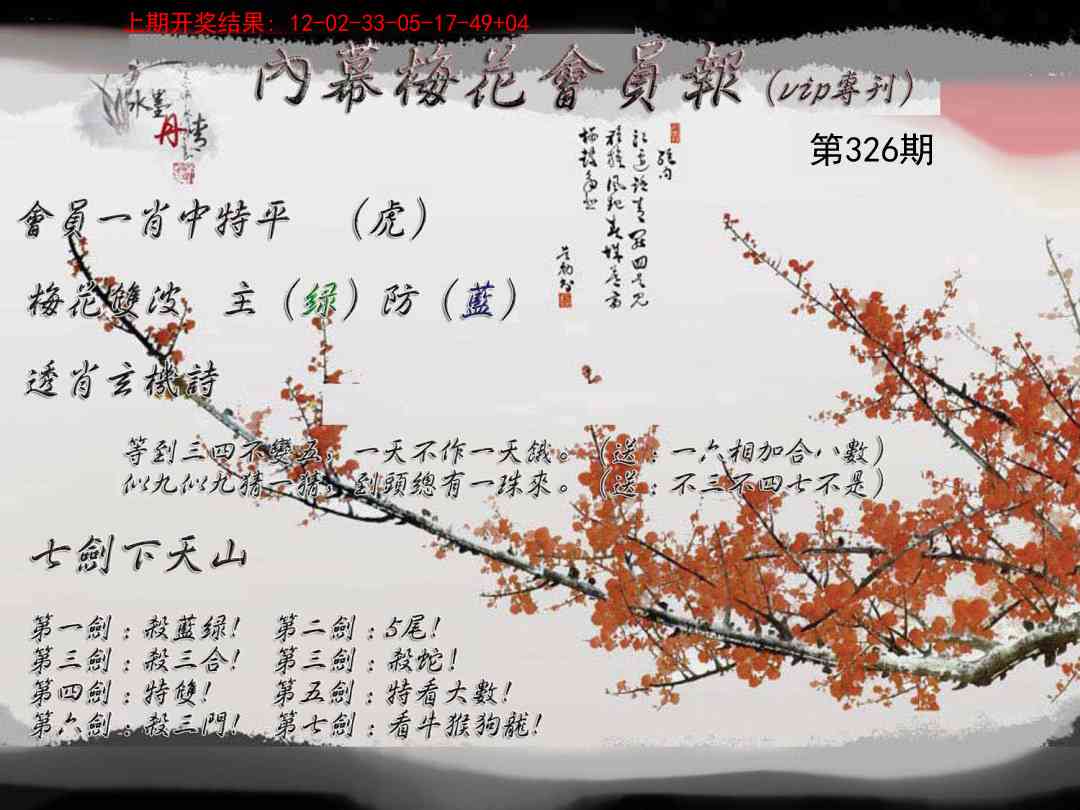 上期开奖结果: 12-02-33-05-17-49+04
內幕梅花會員報(vip專刊)
水墨
丹情
第326期
會員一肖中特平 （虎）
梅花雙波 主（绿）防（藍）
透肖玄機詩
等到三四不變五，一天不作一天餓。（送：一六相加合八數）
似九似九猜一猜，到頭總有一珠來。（送：不三不四七不是）
七劍下天山
第一劍：殺藍绿! 第二劍：5尾!
第三劍：殺三合! 第三劍：殺蛇!
第四劍：特雙! 第五劍：特看大數!
第六劍：殺三門! 第七劍：看牛猴狗龍!